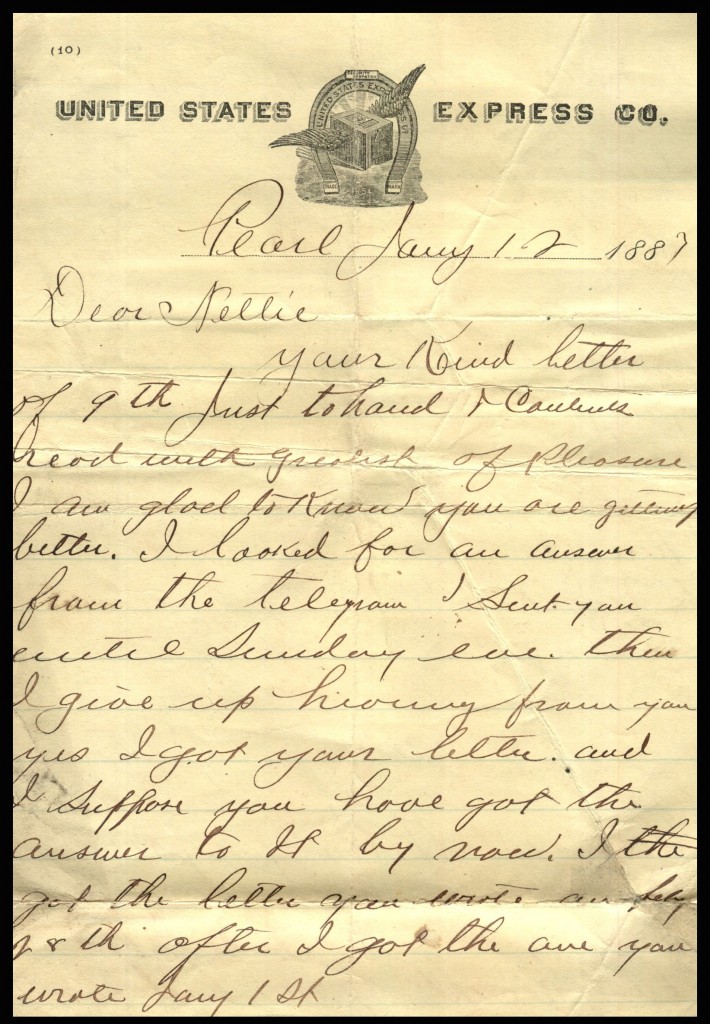 (10)
UNITED STATES EXPRESS CO.
UNITED STATES EXPRESS CO
TRADE MARK
1854
Pearl Jany 12 1887
Dear Nettie
your Kind letter
of 9th Just to hand & Contents
read with greatest of pleasure
I am glad to Know you are getting
better. I looked for an answer
from the telegram I Sent you
until Sunday eve. then
I give up hearing from you
yes I got your letter. and
I Suppose you have got the
answer to It by now. I the
got the letter you wrote on
8th after I got the one you
wrote Jany 1st